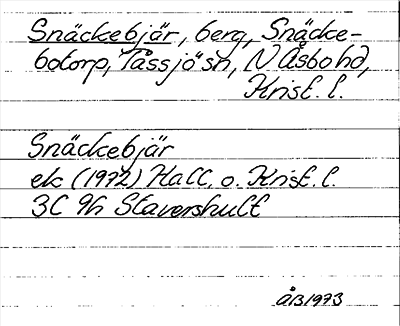 Snäckebjär, berg, Snäcke-
botorp, Tåssjö sn, N Åsbo hd,
Krist. l.
Snäckebjär
ek (1972) Hall. o. Krist. l.
3C 9h Stavershult
ÅB 1973